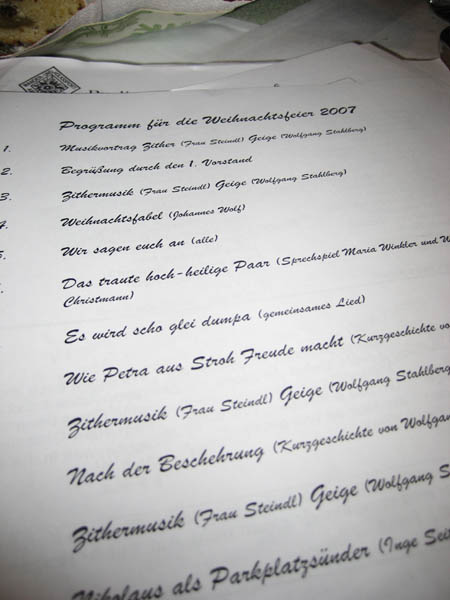 Programm für die Weihnachtsfeier 2007
1. Musikvortrag Zither (Frau Steindl) Geige (Wolfgang Stahlberg)
2. Begrüßung durch den 1. Vorstand
3. Zithermusik (Frau Steindl) Geige (Wolfgang Stahlberg)
4. Weihnachtsfabel (Johannes Wolf)
5. Wir sagen euch an (alle)
Das traute hoch-heilige Paar (Sprechspiel Maria Winkler und W
Christmann)
Es wird scho glei dumpa (gemeinsames Lied)
Wie Petra aus Stroh Freude macht (Kurzgeschichte vo
Zithermusik (Frau Steindl) Geige (Wolfgang Stahlberg
Nach der Beschehrung (Kurzgeschichte von Wolfgan
Zithermusik (Frau Steindl) Geige (Wolfgang S
Nikolaus als Parkplatzsünder (Inge Sei